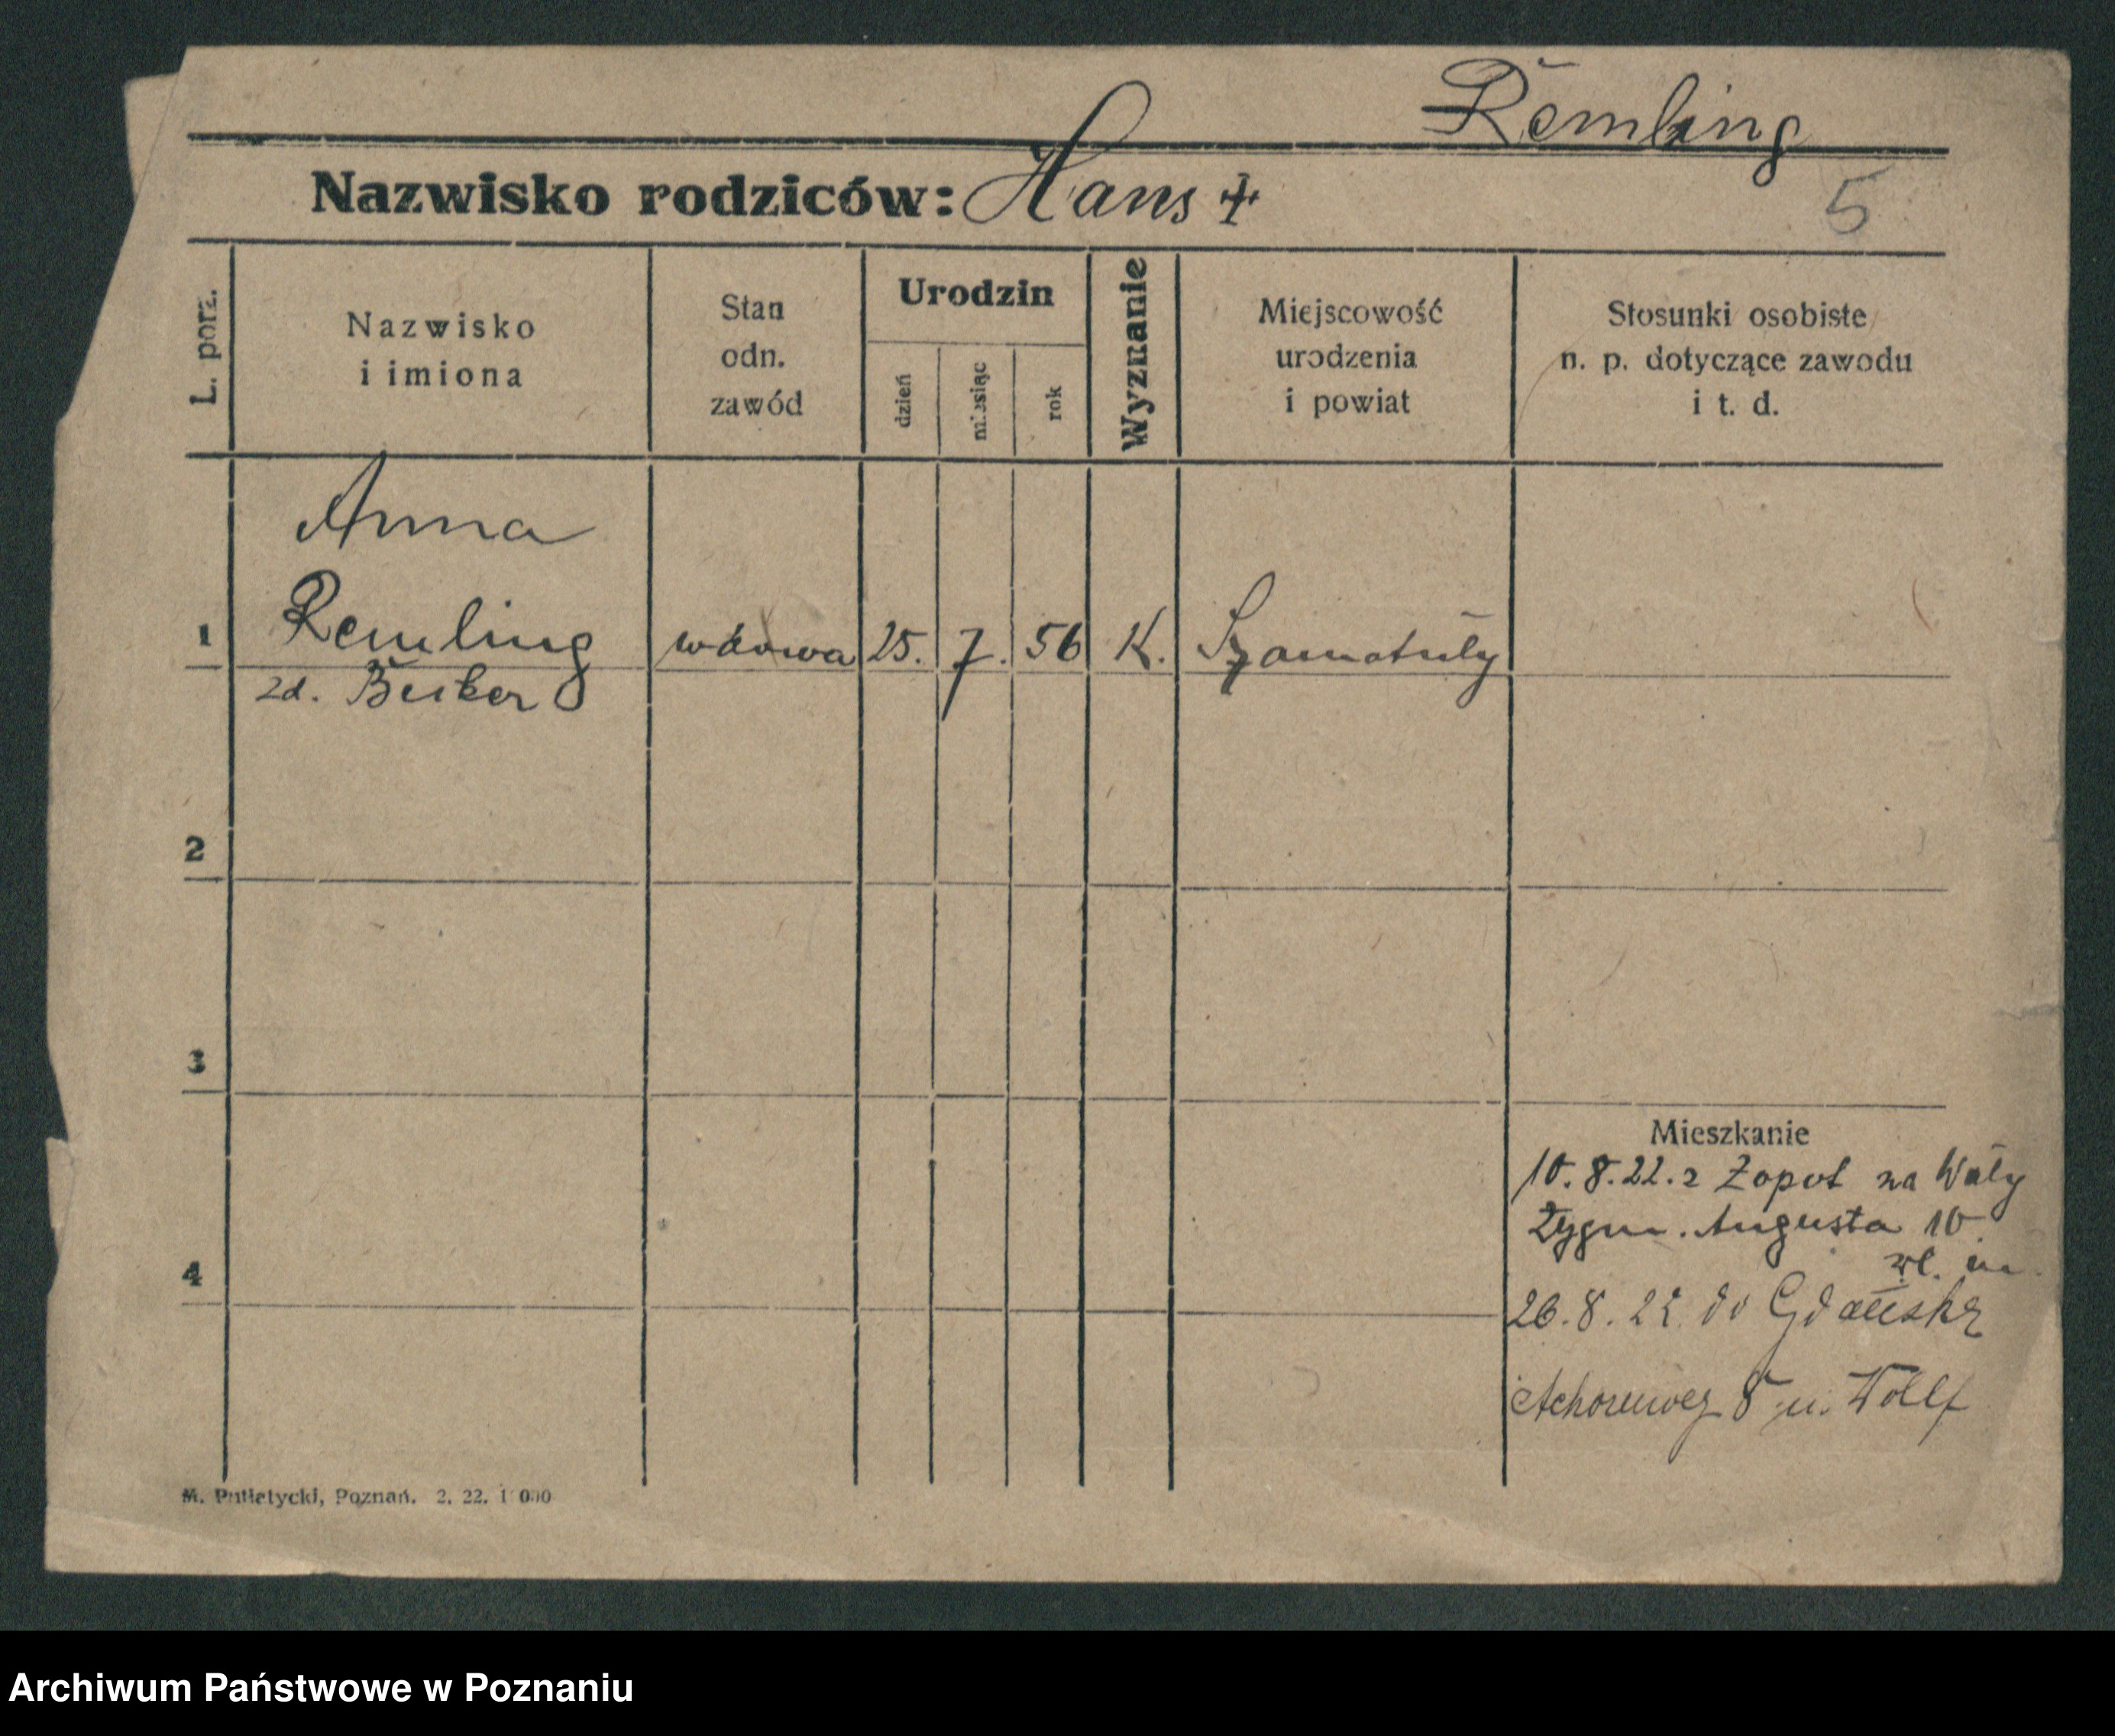 Remling
Nazwisko rodziców: Hans +
5
L. porz.
Nazwisko
i imiona
Stan
odn.
zawód
Urodzin
dzień
miesiąc
rok
Wyznanie
Miejscowość
urodzenia
i powiat
Stosunki osobiste
n. p. dotyczące zawodu
i t. d.
Anna
1 Remling wdowa 25. 7. 56 K. Szamotuły
zd.
2
3
Mieszkanie
10. 8. 22. z Zopot na Wały
Zygm. Augusta 10
4
26. 8. 22. do Gdańska
8 u. Wolff
M. Putiatycki, Poznań. 2. 22.
Archiwum Państwowe w Poznaniu